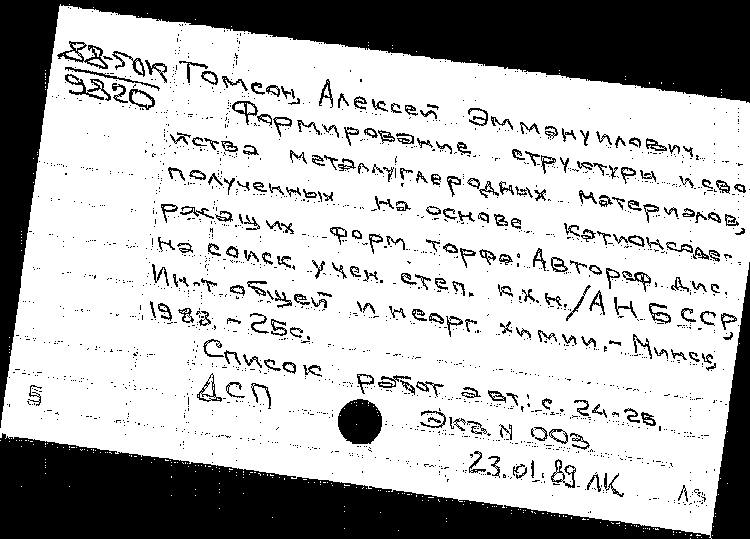 88-5ДК
9820
Томсон, Алексей Эммануилович.
Формирование структуры и сво-
йства металлуглеродных материалов,
полученных на основе катионсоде-
ращих форм торфа: Автореф. дис.
на соиск. учен. степ. к.х.н. / АН БССР,
Ин-т общей и неорг. химии. - Минск,
1988. - 25с.
Список работ авт.: с. 24-25.
ДСП
Экз N 003
5
23.01.89 ЛК